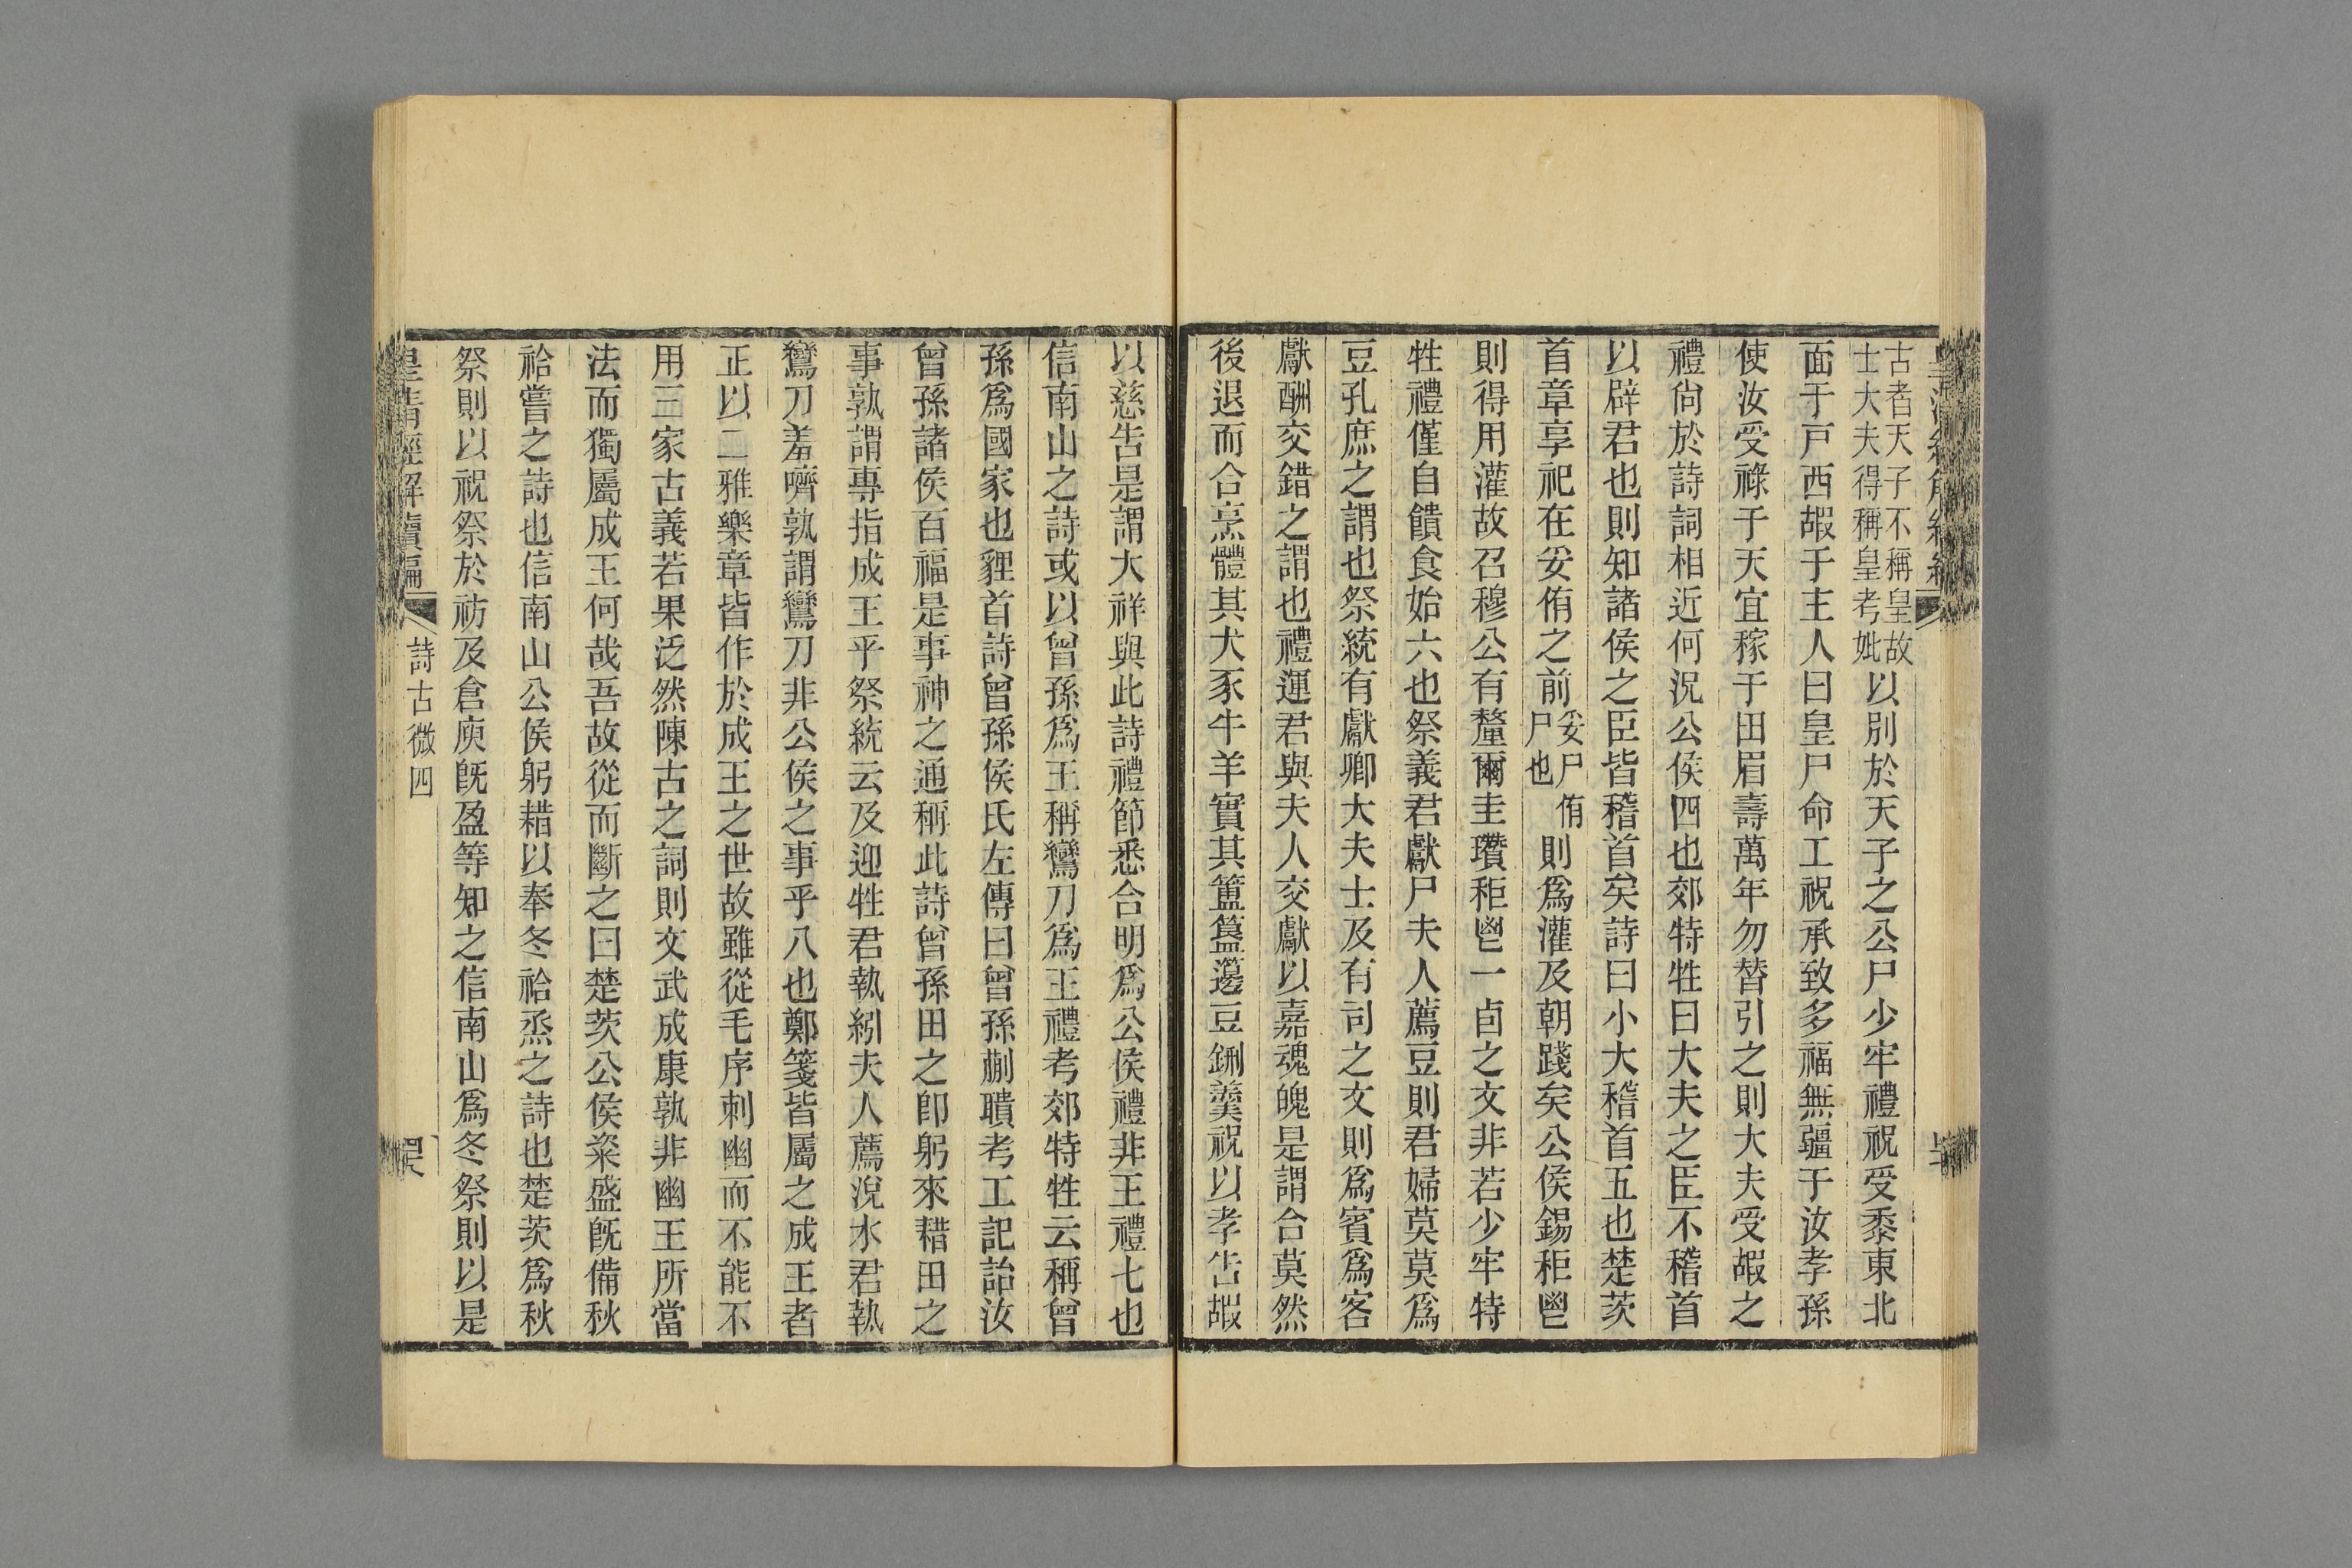 古者天子不稱皇故士大夫得稱皇考妣以別於天子之公尸少牢禮祝受黍東北
面于戸西嘏于主人曰皇尸命工祝承致多福無疆于汝孝孫
使汝受祿于天宜稼于田眉壽萬年勿替引之則大夫受嘏之
禮尙於詩詞相近何況公侯四也郊特牲曰大夫之臣不稽首
以辟君也則知諸侯之臣皆稽首矣詩曰小大稽首五也楚茨
首章享祀在妥侑之前妥尸侑尸也則爲灌及朝踐矣公侯錫秬鬯
則得用灌故召穆公有釐爾圭瓚秬鬯一卣之文非若少牢特
牲禮僅自饋食始六也祭義君獻尸夫人薦豆則君婦莫莫爲
豆孔庶之謂也祭統有獻卿大夫士及有司之文則爲賓爲客
獻酬交錯之謂也禮運君與夫人交獻以嘉魂魄是謂合莫然
後退而合烹體其犬豕牛羊實其簠簋籩豆鉶羹祝以孝告嘏
以慈告是謂大祥與此詩禮節悉合明爲公侯禮非王禮七也
信南山之詩或以曾孫爲王稱鸞刀爲王禮考郊特牲云稱曾
孫爲國家也貍首詩曾孫侯氏左傳曰曾孫蒯聵考工記詒汝
曾孫諸侯百福是事神之通稱此詩曾孫田之卽躬來耤田之
事孰謂專指成王乎祭統云及迎牲君執紖夫人薦涗水君執
鸞刀羞嚌孰謂鸞刀非公侯之事乎八也鄭箋皆屬之成王者
正以二雅樂章皆作於成王之世故雖從毛序刺幽而不能不
用三家古義若果泛然陳古之詞則文武成康孰非幽王所當
法而獨屬成王何哉吾故從而斷之曰楚茨公侯粢盛旣備秋
祫嘗之詩也信南山公侯躬耤以奉冬祫烝之詩也楚茨爲秋
祭則以祝祭於祊及倉庾旣盈等知之信南山爲冬祭則以是
皇清經解續編
詩古微四